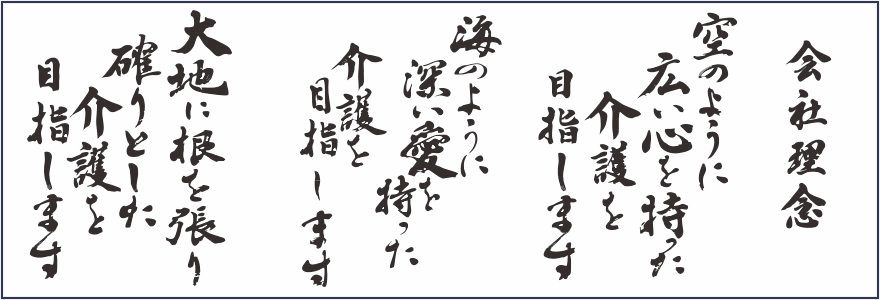 会社理念
空のように
広い心を持った
介護を
目指します
海のように
深い愛を
持った
介護を
目指します
大地に根を張り
確りとした
介護を
目指します